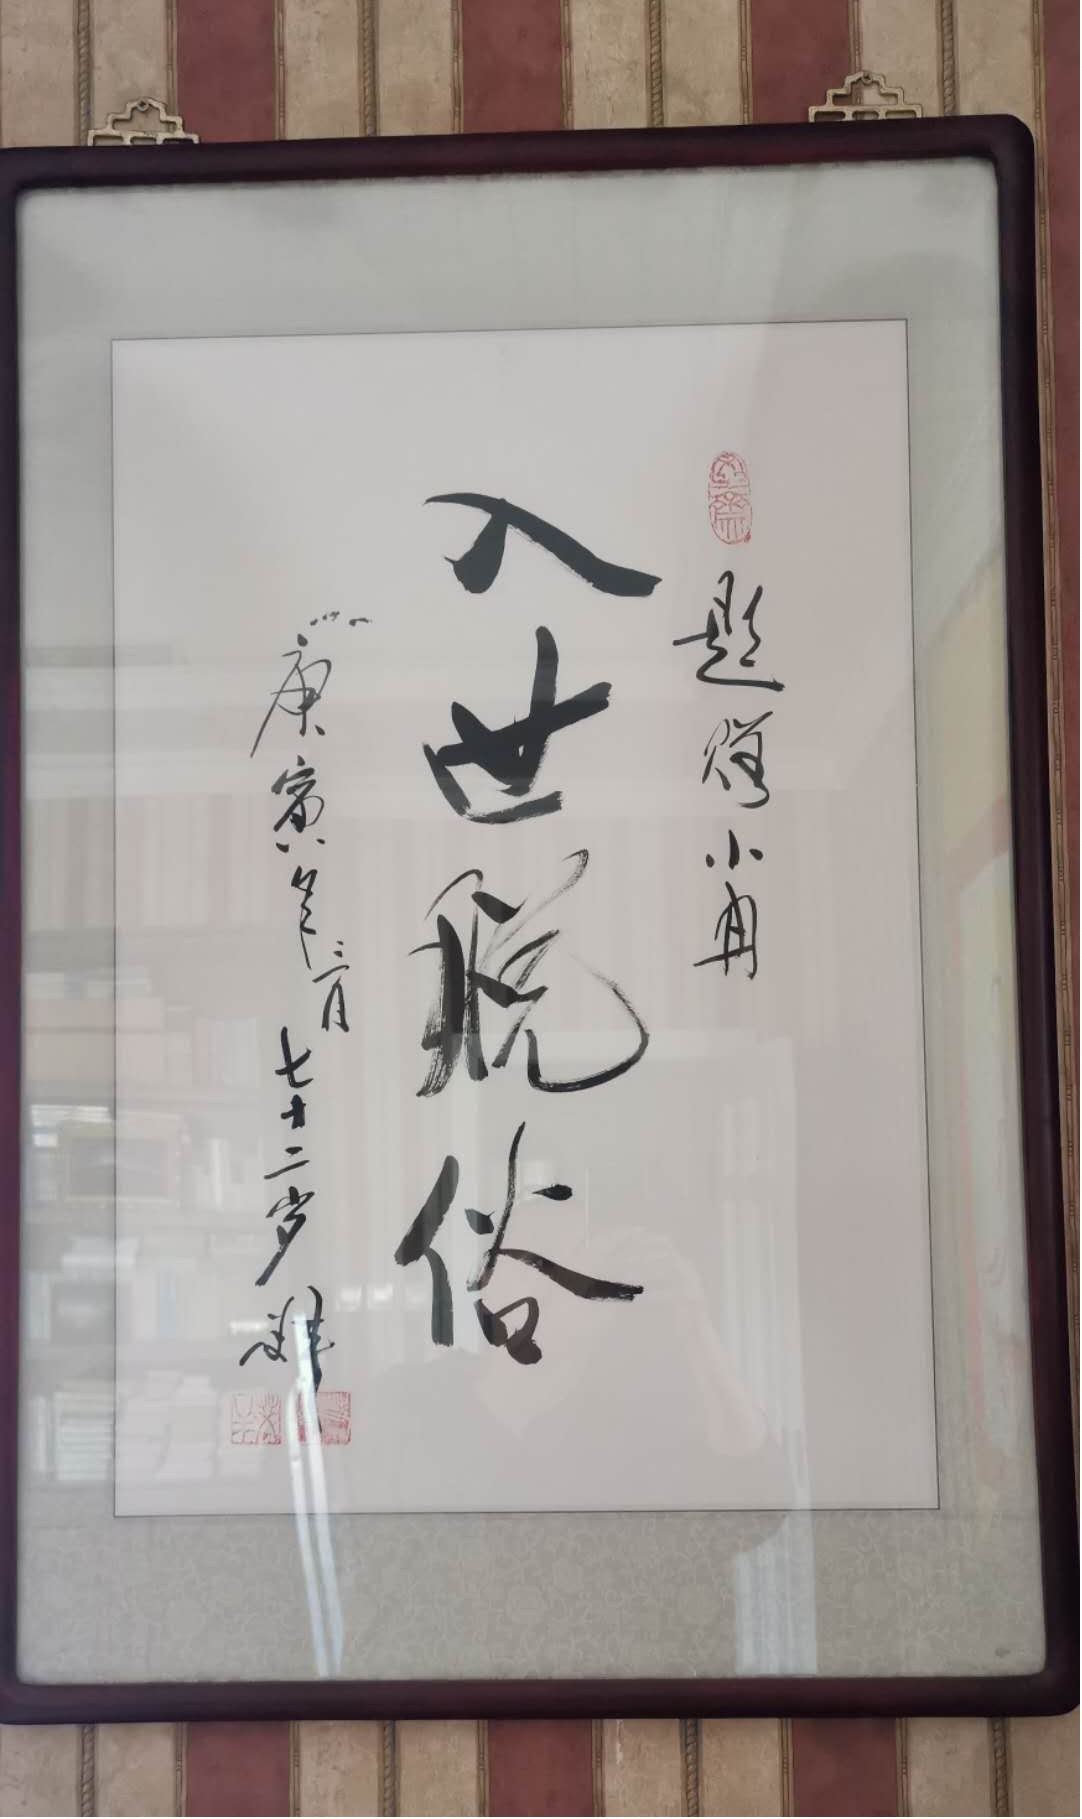 题
小冉
入世脱俗
庚寅年三月
七十二岁